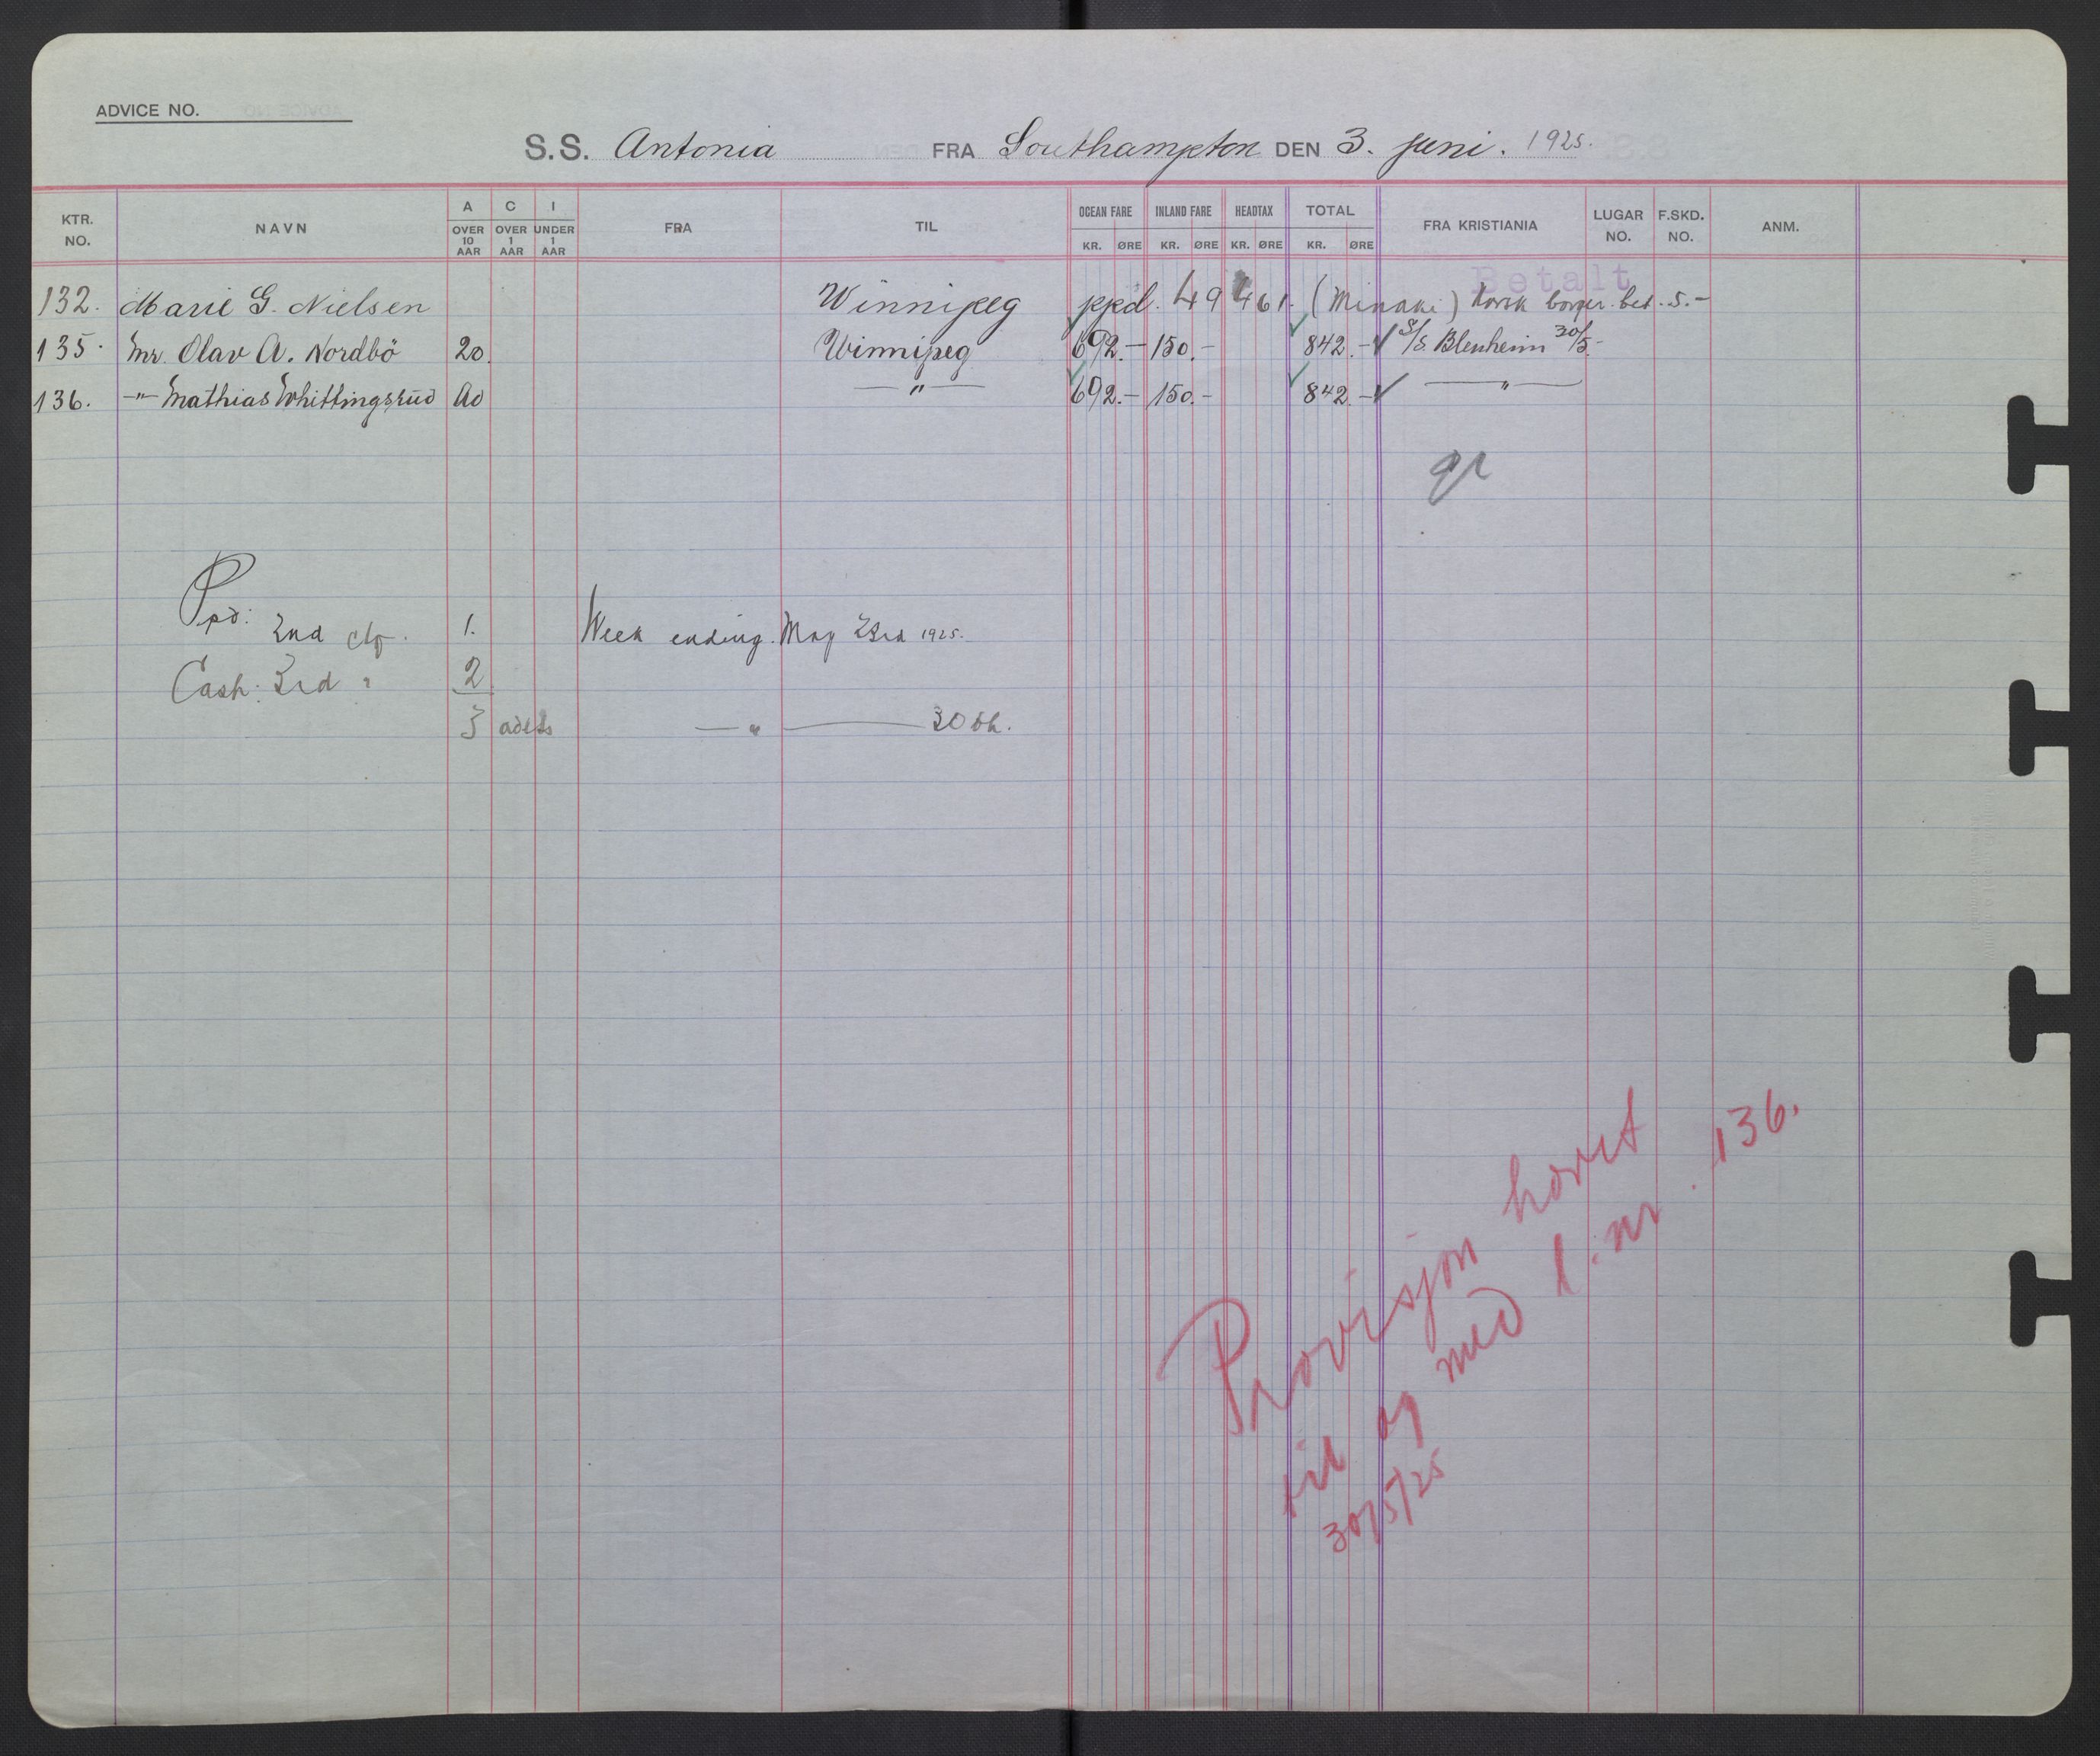 ADVICE NO.
S.S. Antonia FRA Southampton DEN 3. juni. 1925.
KTR. NO. NAVN A OVER 10 AAR C OVER 1 AAR I UNDER 1 AAR FRA TIL OCEAN FARE KR. ØRE INLAND FARE KR. ØRE HEADTAX KR. ØRE TOTAL KR. ØRE FRA KRISTIANIA LUGAR NO. F.SKD. NO. ANM.
Betalt
132. Marie G. Nielsen Winnipeg ppd. 49461. (Minaki) norsk borger. bet. 5.-
135. Mr. Olav A. Nordbö 20. Winnipeg 692.- 150.- 842.- S/S. Blenheim 30/5.-
136. -"- Mathias Whittingsrud 20 -"- 692.- 150.- 842.- -"-
Ppd: 2nd cl 1. Week ending May 23rd 1925.
Cash: 3rd " 2
3 adets -"- 30th.
Provisjon hævet
til og med k.nr. 136.
30/5/25